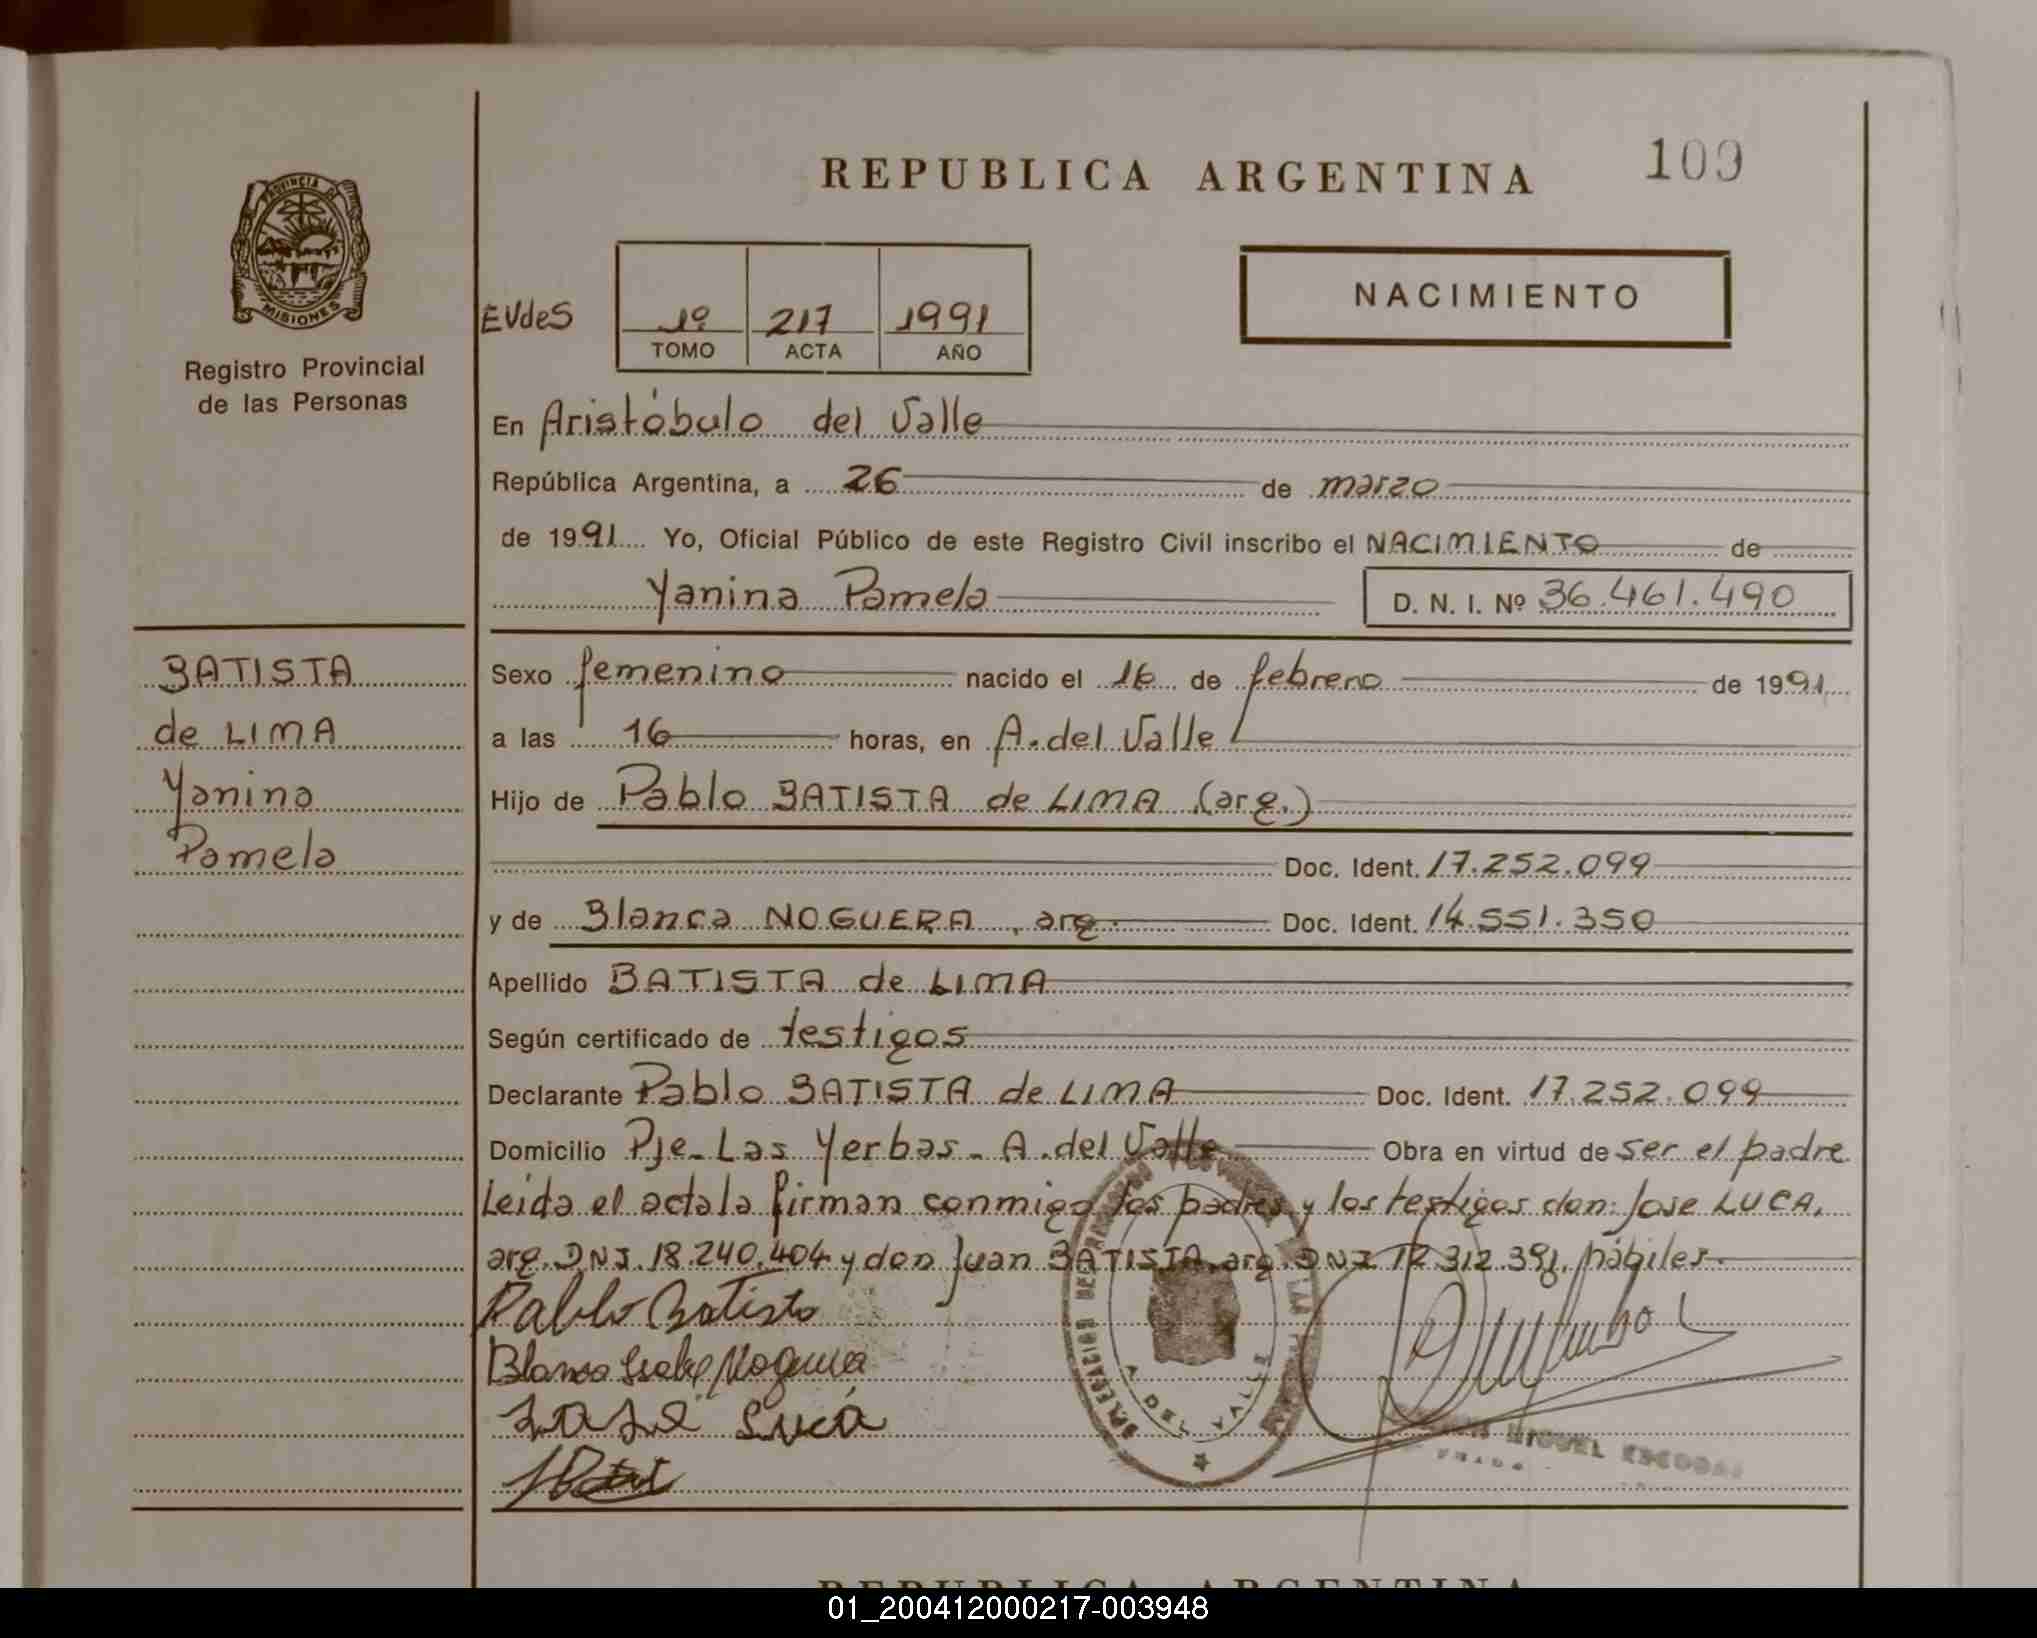 REPUBLICA ARGENTINA
109
PROVINCIA D
MISIONES
Registro Provincial
de las Personas
EVdeS
1º 217 1991
TOMO ACTA AÑO
NACIMIENTO
En Aristóbulo del Valle
República Argentina, a 26 de marzo
de 1991 Yo, Oficial Público de este Registro Civil inscribo el NACIMIENTO de
Yanina Pamela
D. N. I. Nº 36.461.490
BATISTA
de LIMA
Yanina
Pamela
Sexo femenino nacido el 16 de febrero de 1991
a las 16 horas, en A. del Valle
Hijo de Pablo BATISTA de LIMA (arg.)
Doc. Ident. 17.252.099
y de Blanca NOGUERA, arg. Doc. Ident. 14.551.350
Apellido BATISTA de LIMA
Según certificado de testigos
Declarante Pablo BATISTA de LIMA Doc. Ident. 17.252.099
Domicilio Pje. Las Yerbas - A. del Valle Obra en virtud de ser el padre
Leida el acta la firman conmigo los padres y los testigos don: Jose LUCA,
arg. DNI. 18.240.404 y don Juan BATISTA, arg. DNI 12.312.391, hábiles.
Pablo Batista
Blanca Isabel Noguera
José Luca
A DEL VALLE
MIGUEL ESCOBAR
REPUBLICA ARGENTINA
01_200412000217-003948